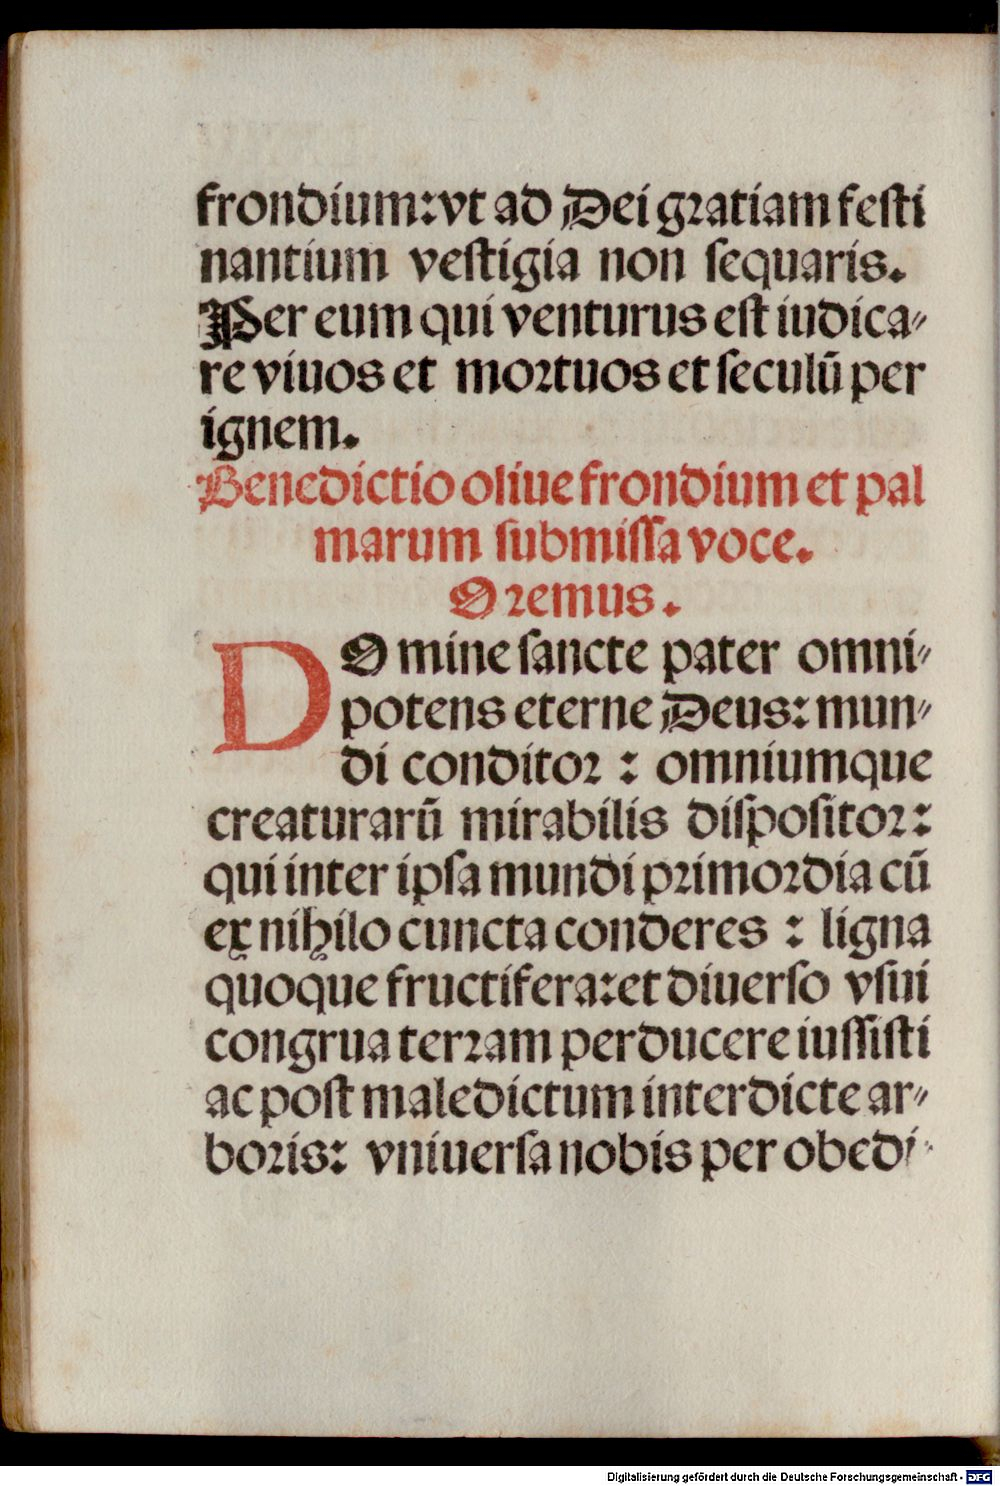 frondium: vt ad Dei gratiam festi
nantium vestigia non sequaris.
Per eum qui venturus est iudica-
re viuos et mortuos et seculū per
ignem.
Benedictio oliue frondium et pal
marum submissa voce.
Oremus.
DOmine sancte pater omni-
potens eterne Deus: mun-
di conditor : omniumque
creaturarū mirabilis dispositor:
qui inter ipsa mundi primordia cū
ex nihilo cuncta conderes : ligna
quoque fructifera: et diuerso vsui
congrua terram perducere iussisti
ac post maledictum interdicte ar-
boris: vniuersa nobis per obedi-
Digitalisierung gefördert durch die Deutsche Forschungsgemeinschaft - DFG